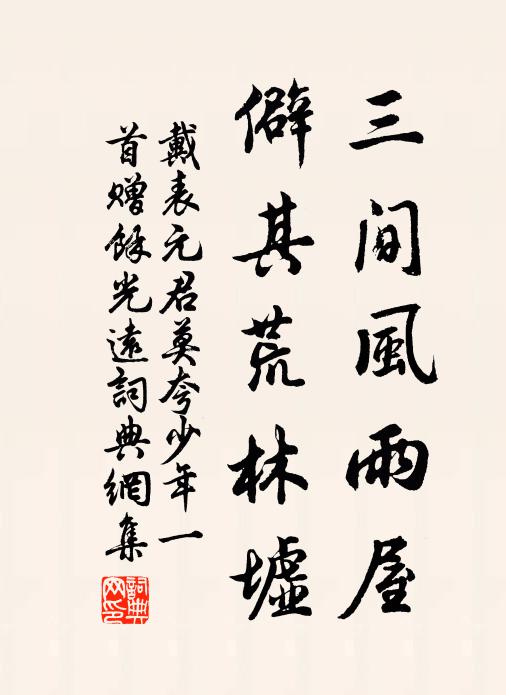 三間風雨屋
僻其荒林墟
戴表元君莫夸少年一
首贈余光遠詞典網集
詞典網印